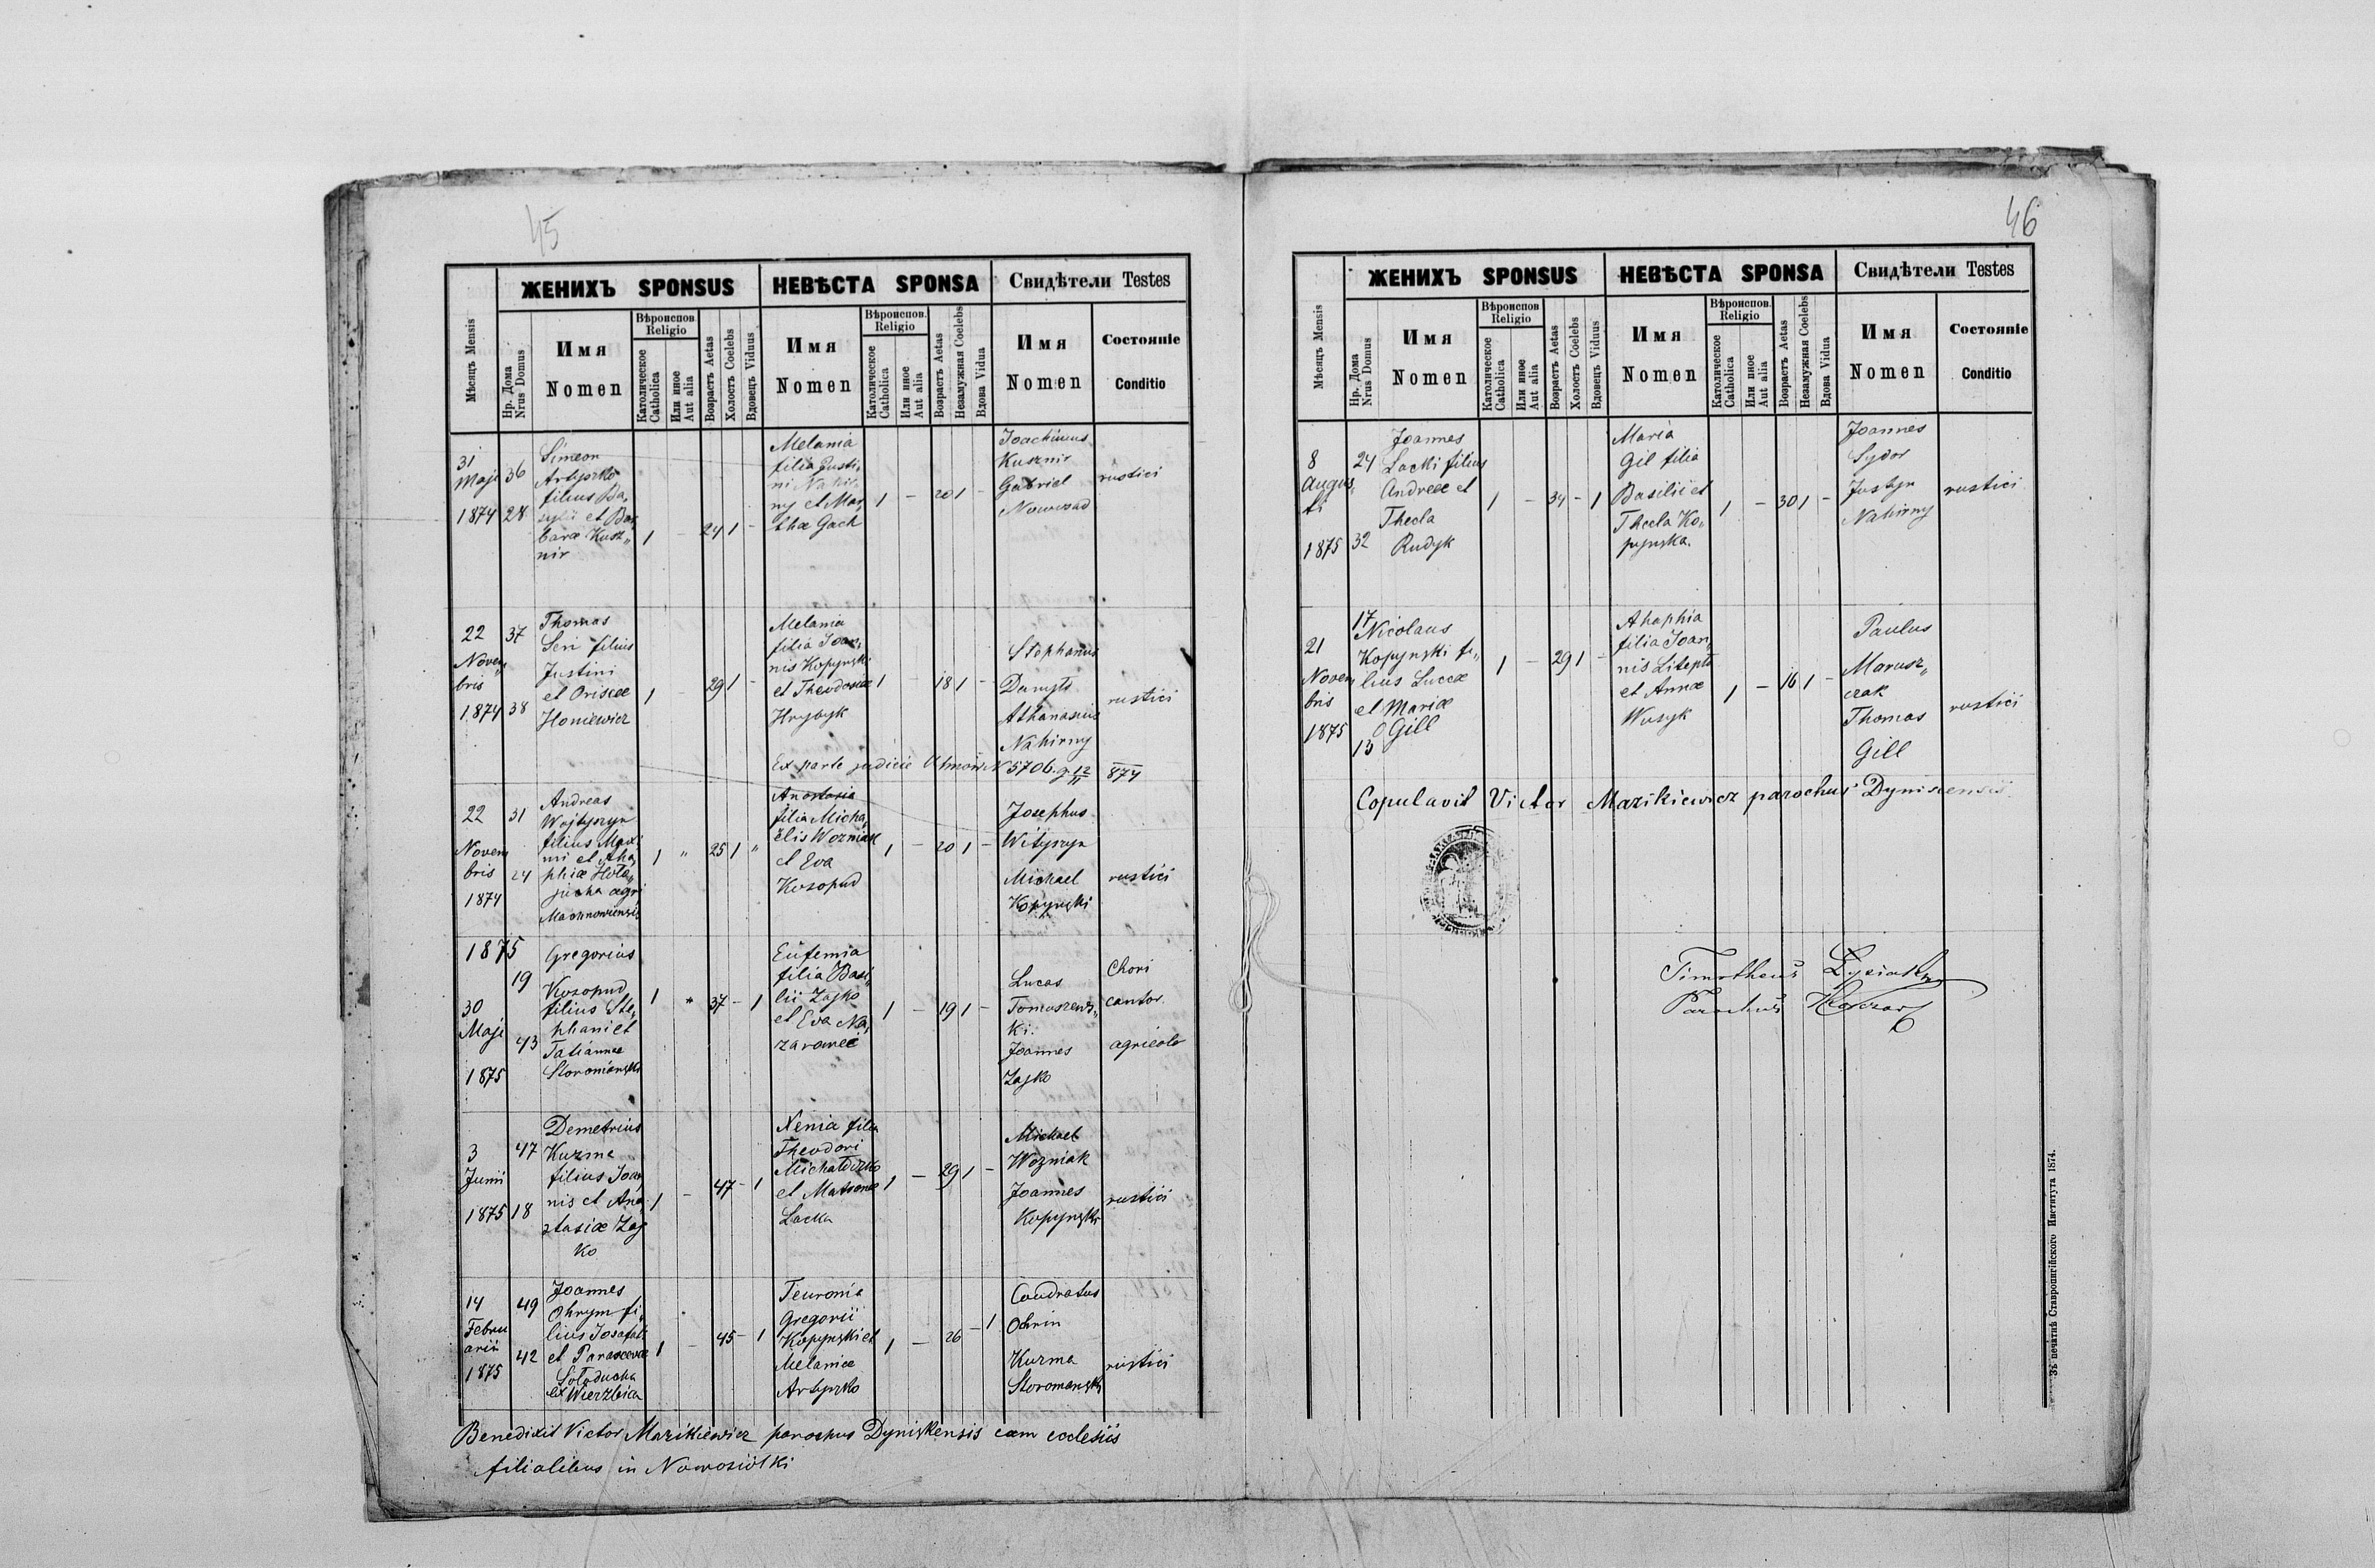 45
ЖЕНИХЪ SPONSUS НЕВѢСТА SPONSA Свидѣтели Testes
Мѣсяцъ Mensis
Нр. Дома Nrus Domus
Имя Nomen
Вѣроиспов. Religio
Католическое Catholica
Или иное Aut alia
Возрастъ Aetas
Холостъ Coelebs
Вдовецъ Viduus
Имя Nomen
Вѣроиспов. Religio
Католическое Catholica
Или иное Aut alia
Возрастъ Aetas
Незамужная Coelebs
Вдова Vidua
Имя Nomen
Состояніе Conditio
31
Maji
1874
36
28
Simeon
Artyszko
filius Ba„
sylii et Bar„
barae Kusz„
nir
1 – 24 1 –
Melania
filia Justi„
ni Nahir
ny et Mar„
thae Gach
1 – 20 1 –
Joachimus
Kusznir
Gabriel
Nowosad
rustici
22
Novem
bris
1874
37
38
Thomas
Seri filius
Justini
et Orisiae
Honiewicz
1 – 29 1 –
Melania
filia Joan„
nis Kopynski
et Theodosiae
Hrybyk
1 – 18 1 –
Stephanus
Athanasius
Nahirny
rustici
Ex parte judicii N 5706 12/11 874
22
Novem
bris
1874
31
24
Andreas
Wojtyszyn
filius Maxi
mi et Aha„
phiae Hoło„
jucha agri
Machnowiensis
1 „ 25 1 „
Anastasia
filia Micha„
elis Wozniak
et Eva
Kosopud
1 – 20 1 –
Josephus
Wityszyn
Michael
Kopynski
rustici
1875
30
Maji
1875
19
43
Gregorius
Kosopud
filius Ste„
phani et
Tatiannae
Storonianski
1 „ 37 – 1
Eufemia
filia Basi„
lii Zajko
et Eva Na„
zarowec
1 – 19 1 –
Lucas
Tomaszews„
ki.
Joannes
Zajko
Chori
cantor.
agricola
3
Junii
1875
47
18
Demetrius
Kuzma
filius Joan„
nis et Ana„
stasiae Zaj
ko
1 – 47 – 1
Xenia filia
Theodori
Michałuszko
et Matronae
Lacka
1 – 29 1 –
Michael
Wozniak
Joannes
Kopynski
rustici
14
Febru
arii
1875
49
42
Joannes
Ohrym fi„
lius Josafati
et Parascevae
Sołoducha
ex Wierzbica
1 – 45 – 1
Teuronia
Gregorii
Kopynski et
Melaniae
Artyszko
1 – 26 – 1
Condratus
Ochrin
Kuzma
Storomanski
rustici
Benedixit Victor Mazikiewicz parochus Dyniskensis cum ecclesiis
filialibus in Nowosiołki
46
ЖЕНИХЪ SPONSUS НЕВѢСТА SPONSA Свидѣтели Testes
Мѣсяцъ Mensis
Нр. Дома Nrus Domus
Имя Nomen
Вѣроиспов. Religio
Католическое Catholica
Или иное Aut alia
Возрастъ Aetas
Холостъ Coelebs
Вдовецъ Viduus
Имя Nomen
Вѣроиспов. Religio
Католическое Catholica
Или иное Aut alia
Возрастъ Aetas
Незамужная Coelebs
Вдова Vidua
Имя Nomen
Состояніе Conditio
8
Augus„
ti
1875
24
32
Joannes
Lacki filius
Andreae et
Thecla
Rudyk
1 – 34 – 1
Maria
Gil filia
Basilii et
Thecla Ko„
pynska.
1 – 30 1 –
Joannes
Sydor
Justyn
Nahirny
rustici
21
Novem
bris
1875
17
13
Nicolaus
Kopynski fi„
lius Lucae
et Mariae
Gill
1 – 29 1 –
Ahaphia
filia Joan„
nis Litepło
et Annae
Wusyk
1 – 16 1 –
Paulus
Marusz„
czak
Thomas
Gill
rustici
Copulavit Victor Mazikiewicz parochus Dyniscensis.
Timotheus
Parochus
Зъ печатнѣ Ставропигійского Института 1874.